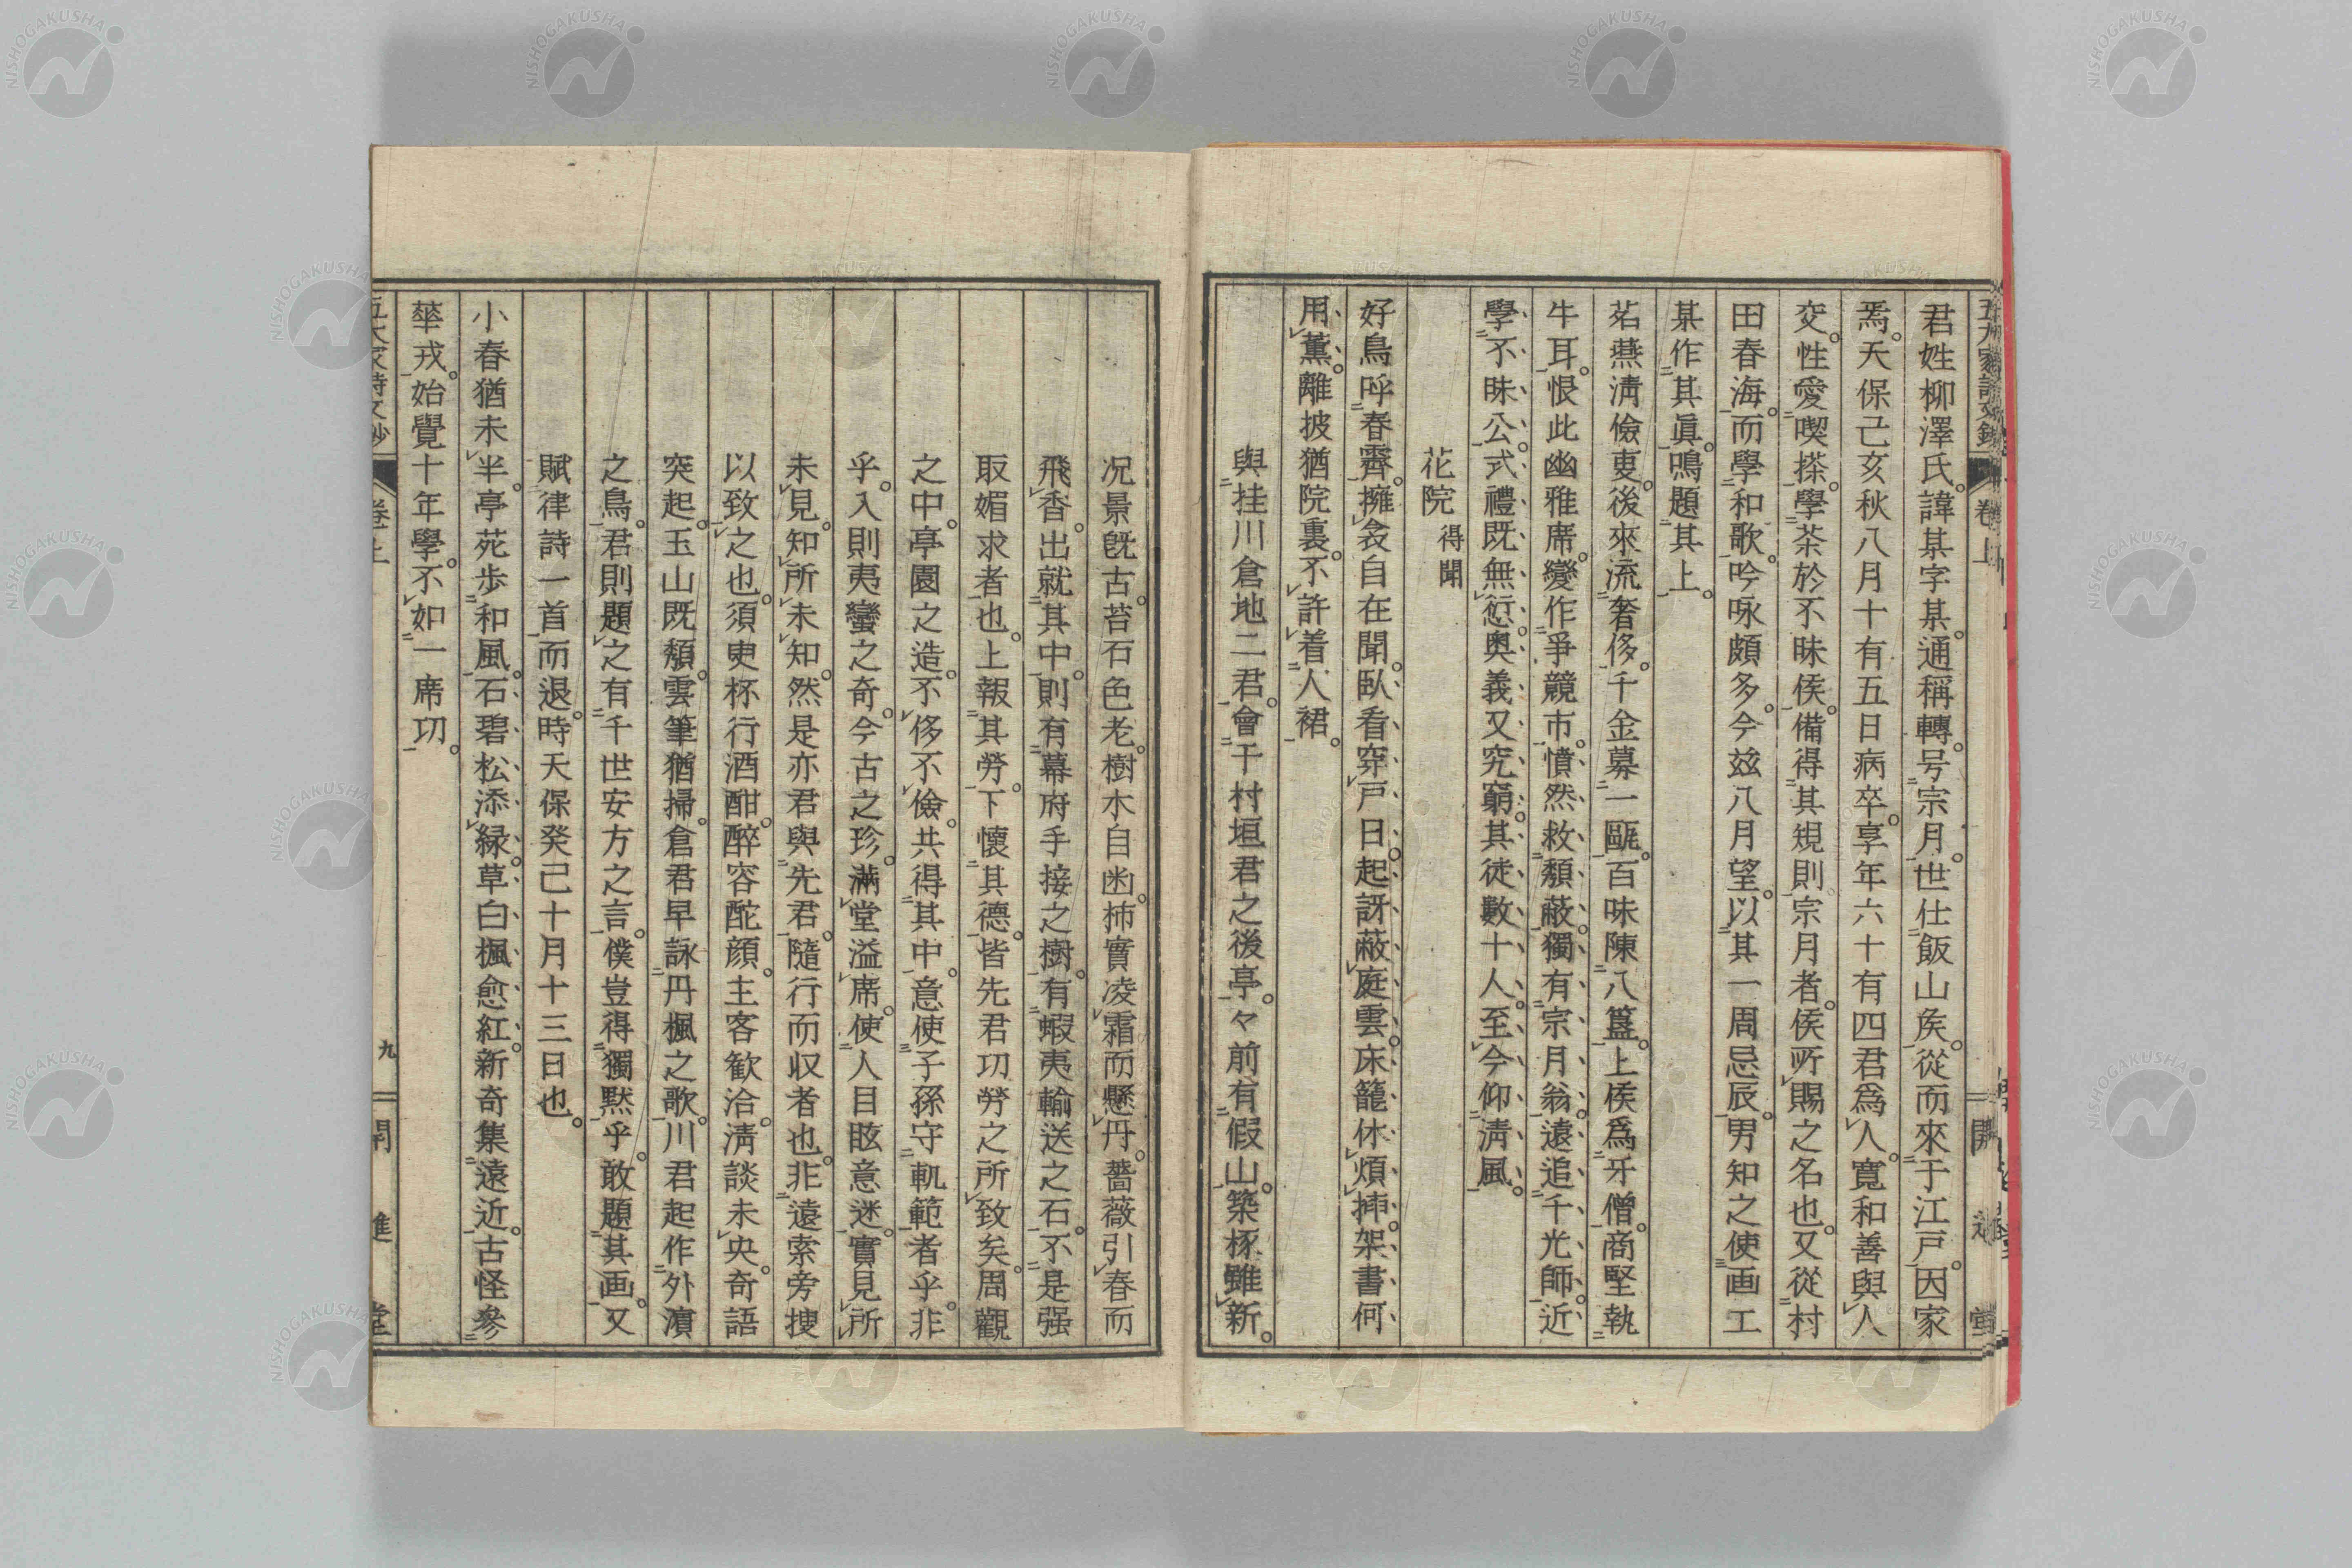 君姓柳澤氏。諱某字某。通稱轉。号宗月。世仕飯山矦。從而來于江戸。因家
焉。天保己亥秋八月十有五日病卒。享年六十有四君爲人。寬和善與人
交。性愛喫搽。學茶於不昧侯。備得其規則宗月者。侯所賜之名也。又從村
田春海。而學和歌。吟咏頗多。今玆八月望。以其一周忌辰。男知之使画工
某作其眞。鳴題其上。
茗燕淸儉吏。後來流奢侈。千金募一甌。百味陳八簋。上侯爲牙僧。商堅執
牛耳。恨此幽雅席。變作爭競市。憤然救頽蔽。獨有宗月翁。遠追千光師。近
學不昧公。式禮既無愆。奧義又究窮。其徒數十人。至今仰淸風。
花院 得聞
好鳥呼春霽。擁衾自在聞。臥看穿戸日。起訝蔽庭雲。床籠休煩揷。架書何
用薰。離披猶院裏。不許着人裙。
與挂川倉地二君。會千村垣君之後亭。々前有假山。築柩雖新。
况景旣古。苔石色老。樹木自凼。柿實凌霜而懸丹。薔薇引春而
飛香。出就其中。則有幕府手接之樹。有蝦夷輸送之石。不是强
取媚求者也。上報其勞。下懷其德。皆先君功勞之所致矣。周觀
之中。亭園之造。不侈不儉。共得其中。意使子孫守軌範者乎。非
乎。入則夷蠻之奇。今古之珍。滿堂溢席。使人目眩意迷。實見所
未見。知所未知。然是亦君與先君。隨行而収者也。非遠索旁搜
以致之也。須臾杯行酒酣。醉容酡顔。主客歡洽。淸談未央。奇語
突起。玉山既頽。雲筆猶掃。倉君早詠丹楓之歌。川君起作外濵
之鳥。君則題之有千世安方之言。僕豈得獨黙乎。敢題其画。又
賦律詩一首而退。時天保癸己十月十三日也。
小春猶未半。亭苑步和風。石碧松添緑。草白楓愈紅。新奇集遠近。古怪參
華戎。始覺十年學。不如一席功。
卷上
九